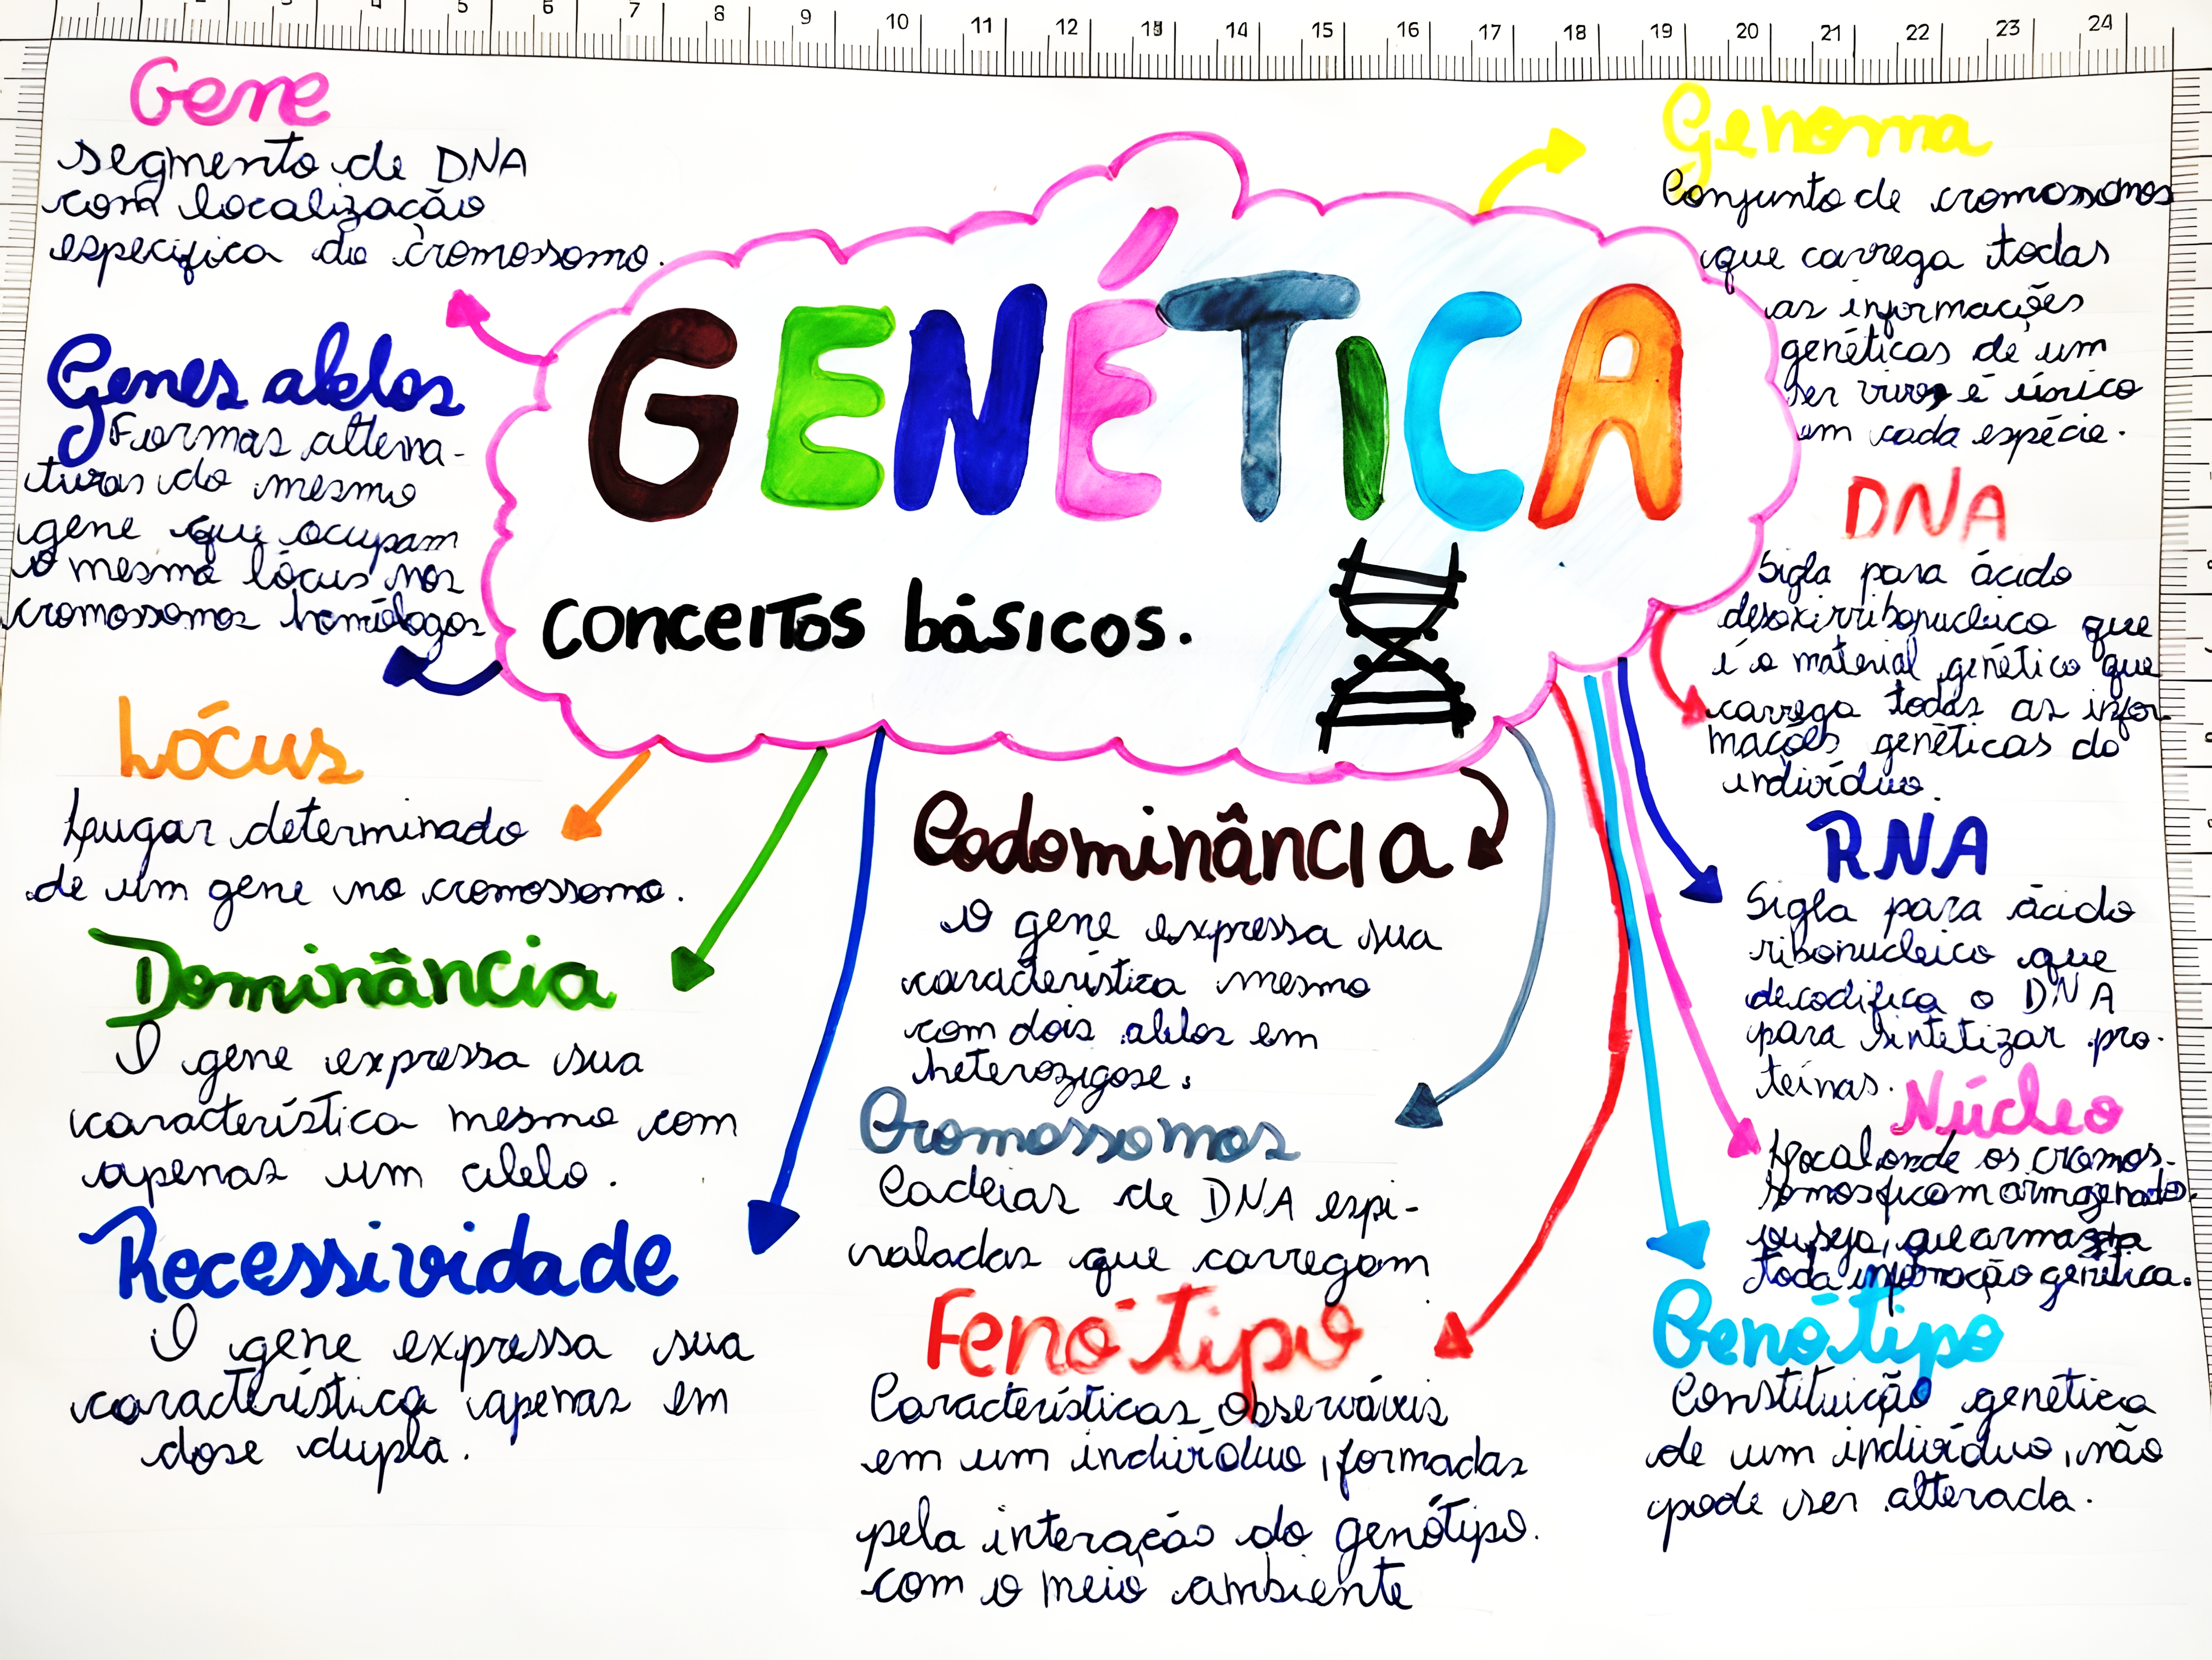 5 6 7 8 9 10 11 12 13 14 15 16 17 18 19 20 21 22 23 24
Gene
segmento de DNA
com localização
especifica do cromossomo.
Genes alelos
Formas alterna-
tivas do mesmo
gene que ocupam
o mesmo lócus nos
cromossomos homólogos
Lócus
Lugar determinado
de um gene no cromossomo.
Dominância
O gene expressa sua
característica mesmo com
apenas um alelo.
Recessividade
O gene expressa sua
característica apenas em
dose dupla.
GENÉTICA
conceitos básicos.
Codominância
O gene expressa sua
característica mesmo
com dois alelos em
heterozigose.
Cromossomos
Cadeias de DNA espi-
raladas que carregam
Fenótipo
Características observáveis
em um indivíduo, formadas
pela interação do genótipo.
com o meio ambiente
Genoma
Conjunto de cromossomos
que carrega todas
as informações
genéticas de um
ser vivo, é único
em cada espécie.
DNA
Sigla para ácido
desoxirribonucleico que
é o material genético que
carrega todas as infor-
mações genéticas do
indivíduo.
RNA
Sigla para ácido
ribonucleico que
decodifica o DNA
para sintetizar pro-
teínas.
Núcleo
Local onde os cromos-
somos ficam armazenados.
ou seja, que armazena
toda informação genética.
Genótipo
Constituição genética
de um indivíduo, não
pode ser alterada.